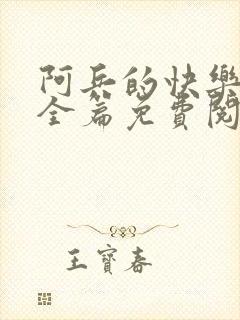 阿兵的快樂
全篇免費閱
王寶春